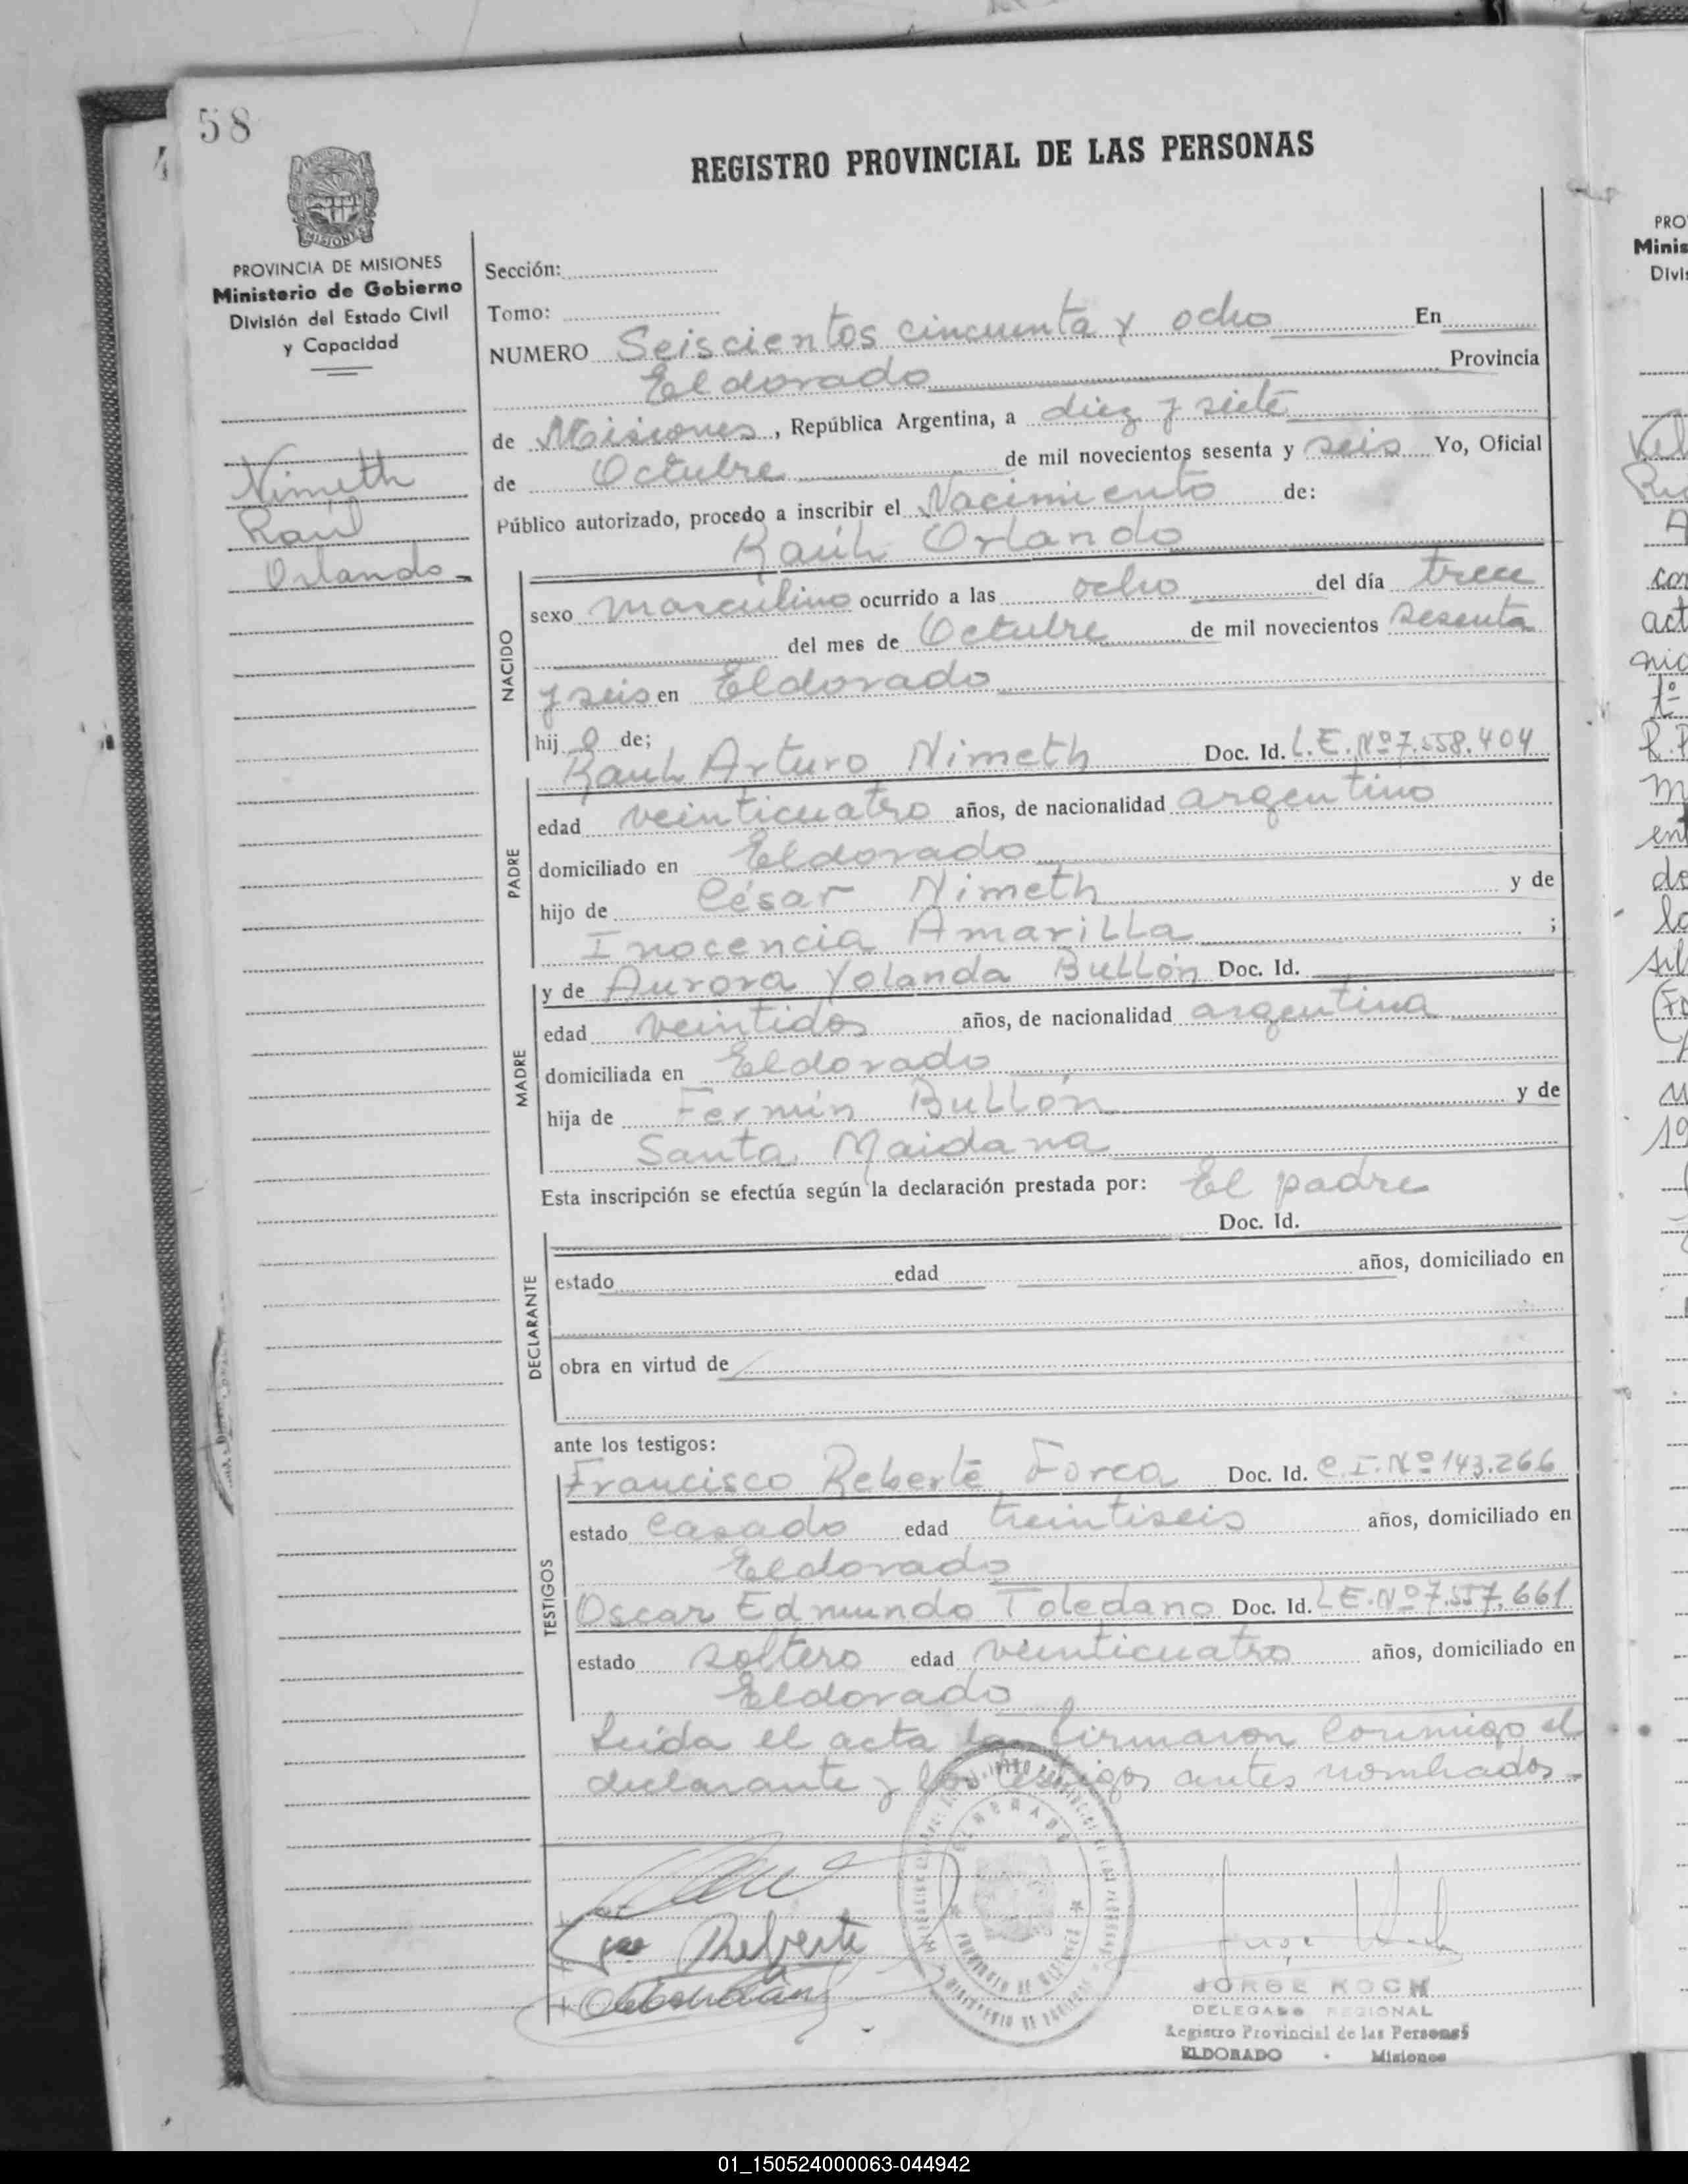 58
REGISTRO PROVINCIAL DE LAS PERSONAS
MISIONES
PROVINCIA DE MISIONES
Ministerio de Gobierno
División del Estado Civil
y Capacidad
Nimeth
Raúl
Orlando
Sección:
Tomo:
NUMERO Seiscientos cincuenta y ocho En
Eldorado Provincia
de Misiones, República Argentina, a diez y siete
de Octubre de mil novecientos sesenta y seis Yo, Oficial
Público autorizado, procedo a inscribir el Nacimiento de:
Raúl Orlando
NACIDO
sexo masculino ocurrido a las ocho del día trece
del mes de Octubre de mil novecientos sesenta
y seis en Eldorado
hijo de;
PADRE
Raul Arturo Nimeth Doc. Id. L.E. Nº 7.558.404
edad veinticuatro años, de nacionalidad argentino
domiciliado en Eldorado
hijo de César Nimeth y de
Inocencia Amarilla ;
MADRE
y de Aurora Yolanda Bullón Doc. Id.
edad veintidos años, de nacionalidad argentina
domiciliada en Eldorado
hija de Fermín Bullón y de
Santa Maidana
Esta inscripción se efectúa según la declaración prestada por: El padre
Doc. Id.
DECLARANTE
estado edad años, domiciliado en
obra en virtud de
ante los testigos:
TESTIGOS
Francisco Reberte Forca Doc. Id. C.I. Nº 143.266
estado casado edad treintiseis años, domiciliado en
Eldorado
Oscar Edmundo Toledano Doc. Id. L.E. Nº 7.557.661
estado soltero edad veinticuatro años, domiciliado en
Eldorado
Leída el acta la firmaron conmigo el
declarante y los testigos antes nombrados.
ELDORADO
PROVINCIA DE MISIONES
Reberte
JORGE KOCH
DELEGADO REGIONAL
Registro Provincial de las Personas
ELDORADO - Misiones
PRO
Minis
Divi
01_150524000063-044942